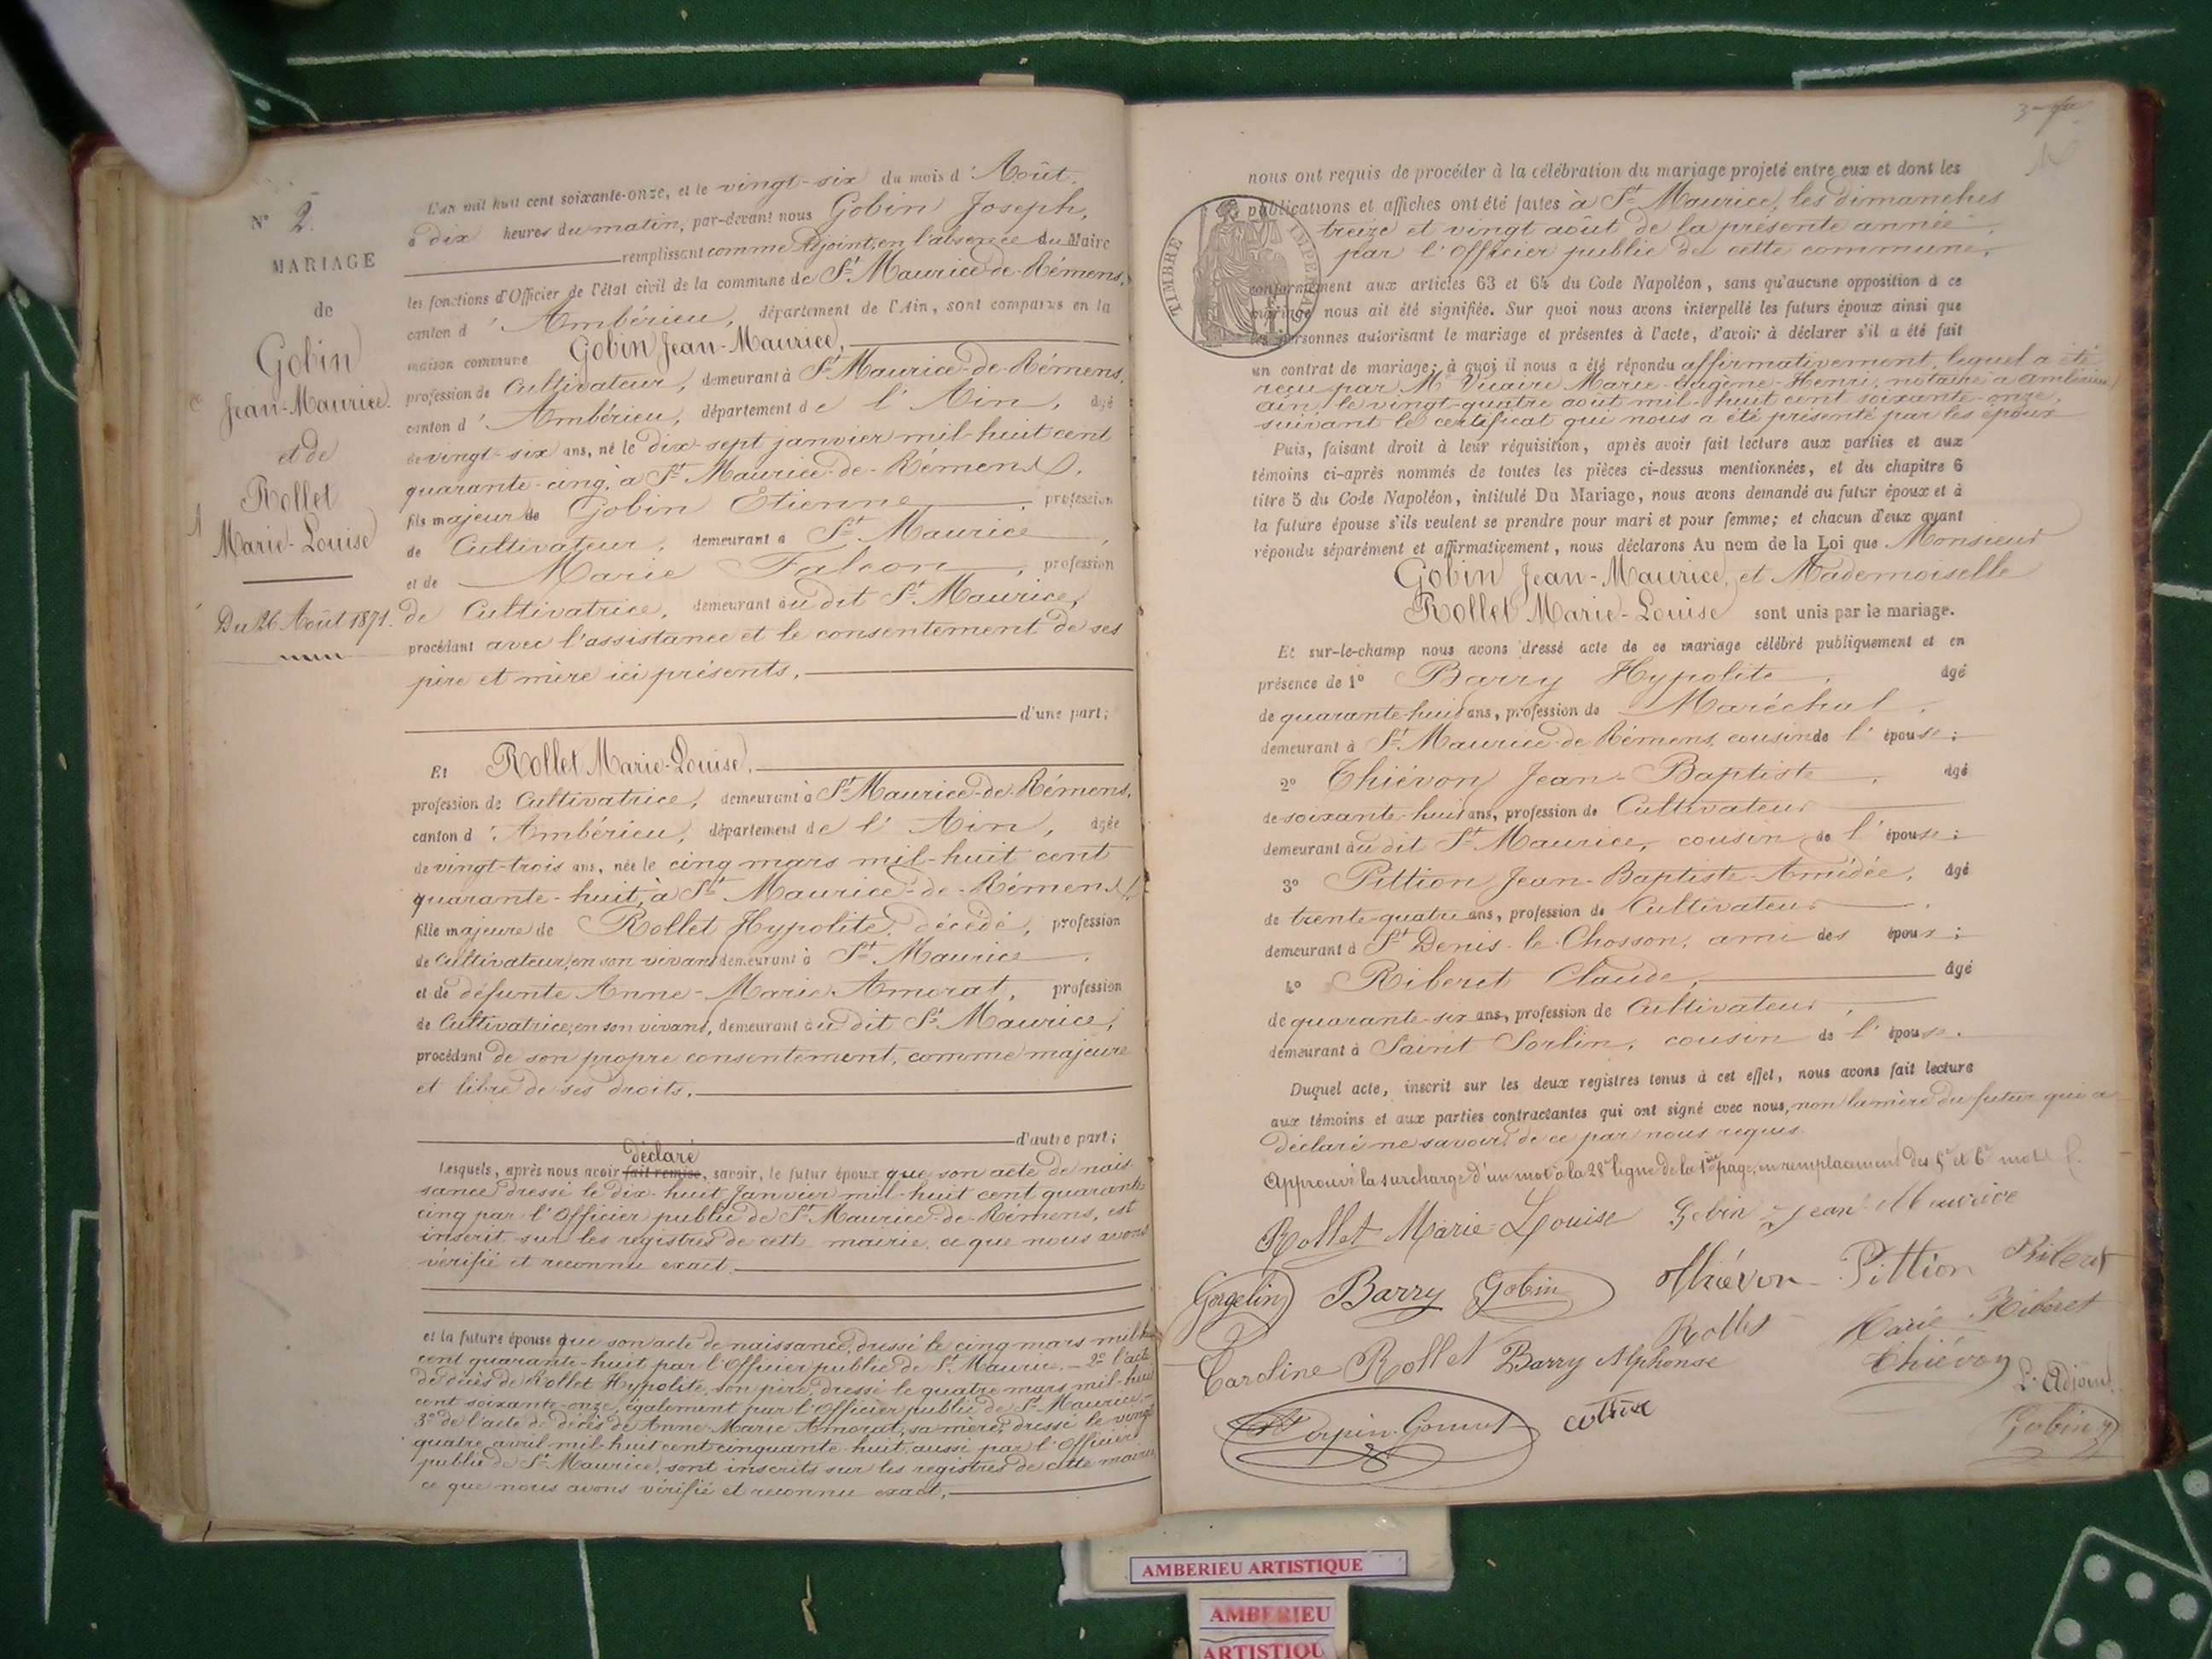 N° 2.
MARIAGE
de
Gobin
Jean-Maurice.
et de
Rollet
Marie-Louise
Du 26 Août 1871.
L'an mil huit cent soixante-onze, et le vingt-six du mois d'Août.
à dix heures du matin, par-devant nous Gobin Joseph,
remplissant comme Adjoint, en l'absence du Maire
les fonctions d'Officier de l'état civil de la commune de St Maurice-de-Rémens,
canton d'Ambérieu, département de l'Ain, sont comparus en la
maison commune Gobin Jean-Maurice,
profession de Cultivateur, demeurant à St Maurice-de-Rémens,
canton d'Ambérieu, département de l'Ain, âgé
de vingt-six ans, né le dix-sept janvier mil-huit cent
quarante-cinq, à St Maurice-de-Rémens,
fils majeur de Gobin Etienne, profession
de Cultivateur, demeurant à St Maurice,
et de Marie Falcon, profession
de Cultivatrice, demeurant au dit St Maurice,
procédant avec l'assistance et le consentement de ses
père et mère ici présents,
d'une part;
Et Rollet Marie-Louise,
profession de Cultivatrice, demeurant à St Maurice-de-Rémens,
canton d'Ambérieu, département de l'Ain, âgée
de vingt-trois ans, née le cinq mars mil-huit cent
quarante-huit, à St Maurice-de-Rémens,
fille majeure de Rollet Hypolite, décédé, profession
de Cultivateur, en son vivant demeurant à St Maurice,
et de défunte Anne-Marie Amorat, profession
de Cultivatrice, en son vivant, demeurant au dit St Maurice,
procédant de son propre consentement, comme majeure
et libre de ses droits.
d'autre part;
déclaré
Lesquels, après nous avoir fait remise, savoir, le futur époux que son acte de nais
sance dressé le dix-huit Janvier mil-huit cent quarante
cinq par l'Officier public de St Maurice-de-Rémens, est
inscrit sur les registres de cette mairie, ce que nous avons
vérifié et reconnu exact.
et la future épouse que son acte de naissance, dressé le cinq mars mil-h
cent quarante-huit par l'Officier public de St Maurice. - 2° l'acte
de décès de Rollet Hypolite, son père, dressé le quatre mars mil-huit
cent soixante-onze, également par l'Officier public de St Maurice,
3° de l'acte de décès de Anne-Marie Amorat, sa mère, dressé le vingt
quatre avril mil-huit cent cinquante-huit, aussi par l'Officier
public de St Maurice, sont inscrits sur les registres de cette mairie
ce que nous avons vérifié et reconnu exact,
nous ont requis de procéder à la célébration du mariage projeté entre eux et dont les
publications et affiches ont été faites à St Maurice, les dimanches
treize et vingt août de la présente année,
par l'Officier public de cette commune,
TIMBRE IMPERIAL
conformément aux articles 63 et 64 du Code Napoléon, sans qu'aucune opposition à ce
mariage nous ait été signifiée. Sur quoi nous avons interpellé les futurs époux ainsi que
les personnes autorisant le mariage et présentes à l'acte, d'avoir à déclarer s'il a été fait
un contrat de mariage; à quoi il nous a été répondu affirmativement, lequel a été
reçu par Mr Vicaire Marie-Eugène-Henri, notaire à Ambérieu
Ain, le vingt-quatre août mil-huit cent soixante-onze,
suivant le certificat qui nous a été présenté par les époux
Puis, faisant droit à leur réquisition, après avoir fait lecture aux parties et aux
témoins ci-après nommés de toutes les pièces ci-dessus mentionnées, et du chapitre 6
titre 5 du Code Napoléon, intitulé Du Mariage, nous avons demandé au futur époux et à
la future épouse s'ils veulent se prendre pour mari et pour femme; et chacun d'eux ayant
répondu séparément et affirmativement, nous déclarons Au nom de la Loi que Monsieur
Gobin Jean-Maurice, et Mademoiselle
Rollet Marie-Louise sont unis par le mariage.
Et sur-le-champ nous avons dressé acte de ce mariage célébré publiquement et en
présence de 1° Barry Hypolite, âgé
de quarante-huit ans, profession de Maréchal,
demeurant à St Maurice de Rémens, cousin de l'épouse;
2° Thiévon Jean-Baptiste, âgé
de soixante-huit ans, profession de Cultivateur
demeurant au dit St Maurice, cousin de l'épouse;
3° Pittion Jean-Baptiste-Amédée, âgé
de trente-quatre ans, profession de Cultivateur,
demeurant à St Denis-le-Chosson, ami des époux;
4° Riberet Claude, âgé
de quarante-six ans, profession de Cultivateur,
demeurant à Saint Sorlin, cousin de l'épouse.
Duquel acte, inscrit sur les deux registres tenus à cet effet, nous avons fait lecture
aux témoins et aux parties contractantes qui ont signé avec nous, non la mère du futur qui a
déclaré ne savoir, de ce par nous requis.
Approuvé la surcharge d'un mot à la 28e ligne de la 1ère page, en remplacement des 5e et 6e mots
Rollet Marie-Louise Gobin Jean Maurice
Gorgelin Barry Gobin Thiévon Pittion Riberet
Rollet Marie Riberet
Caroline Rollet Barry Alphonse Thiévon L'Adjoint
Cottin Gobin
AMBERIEU ARTISTIQUE
AMBERIEU
ARTISTIQU